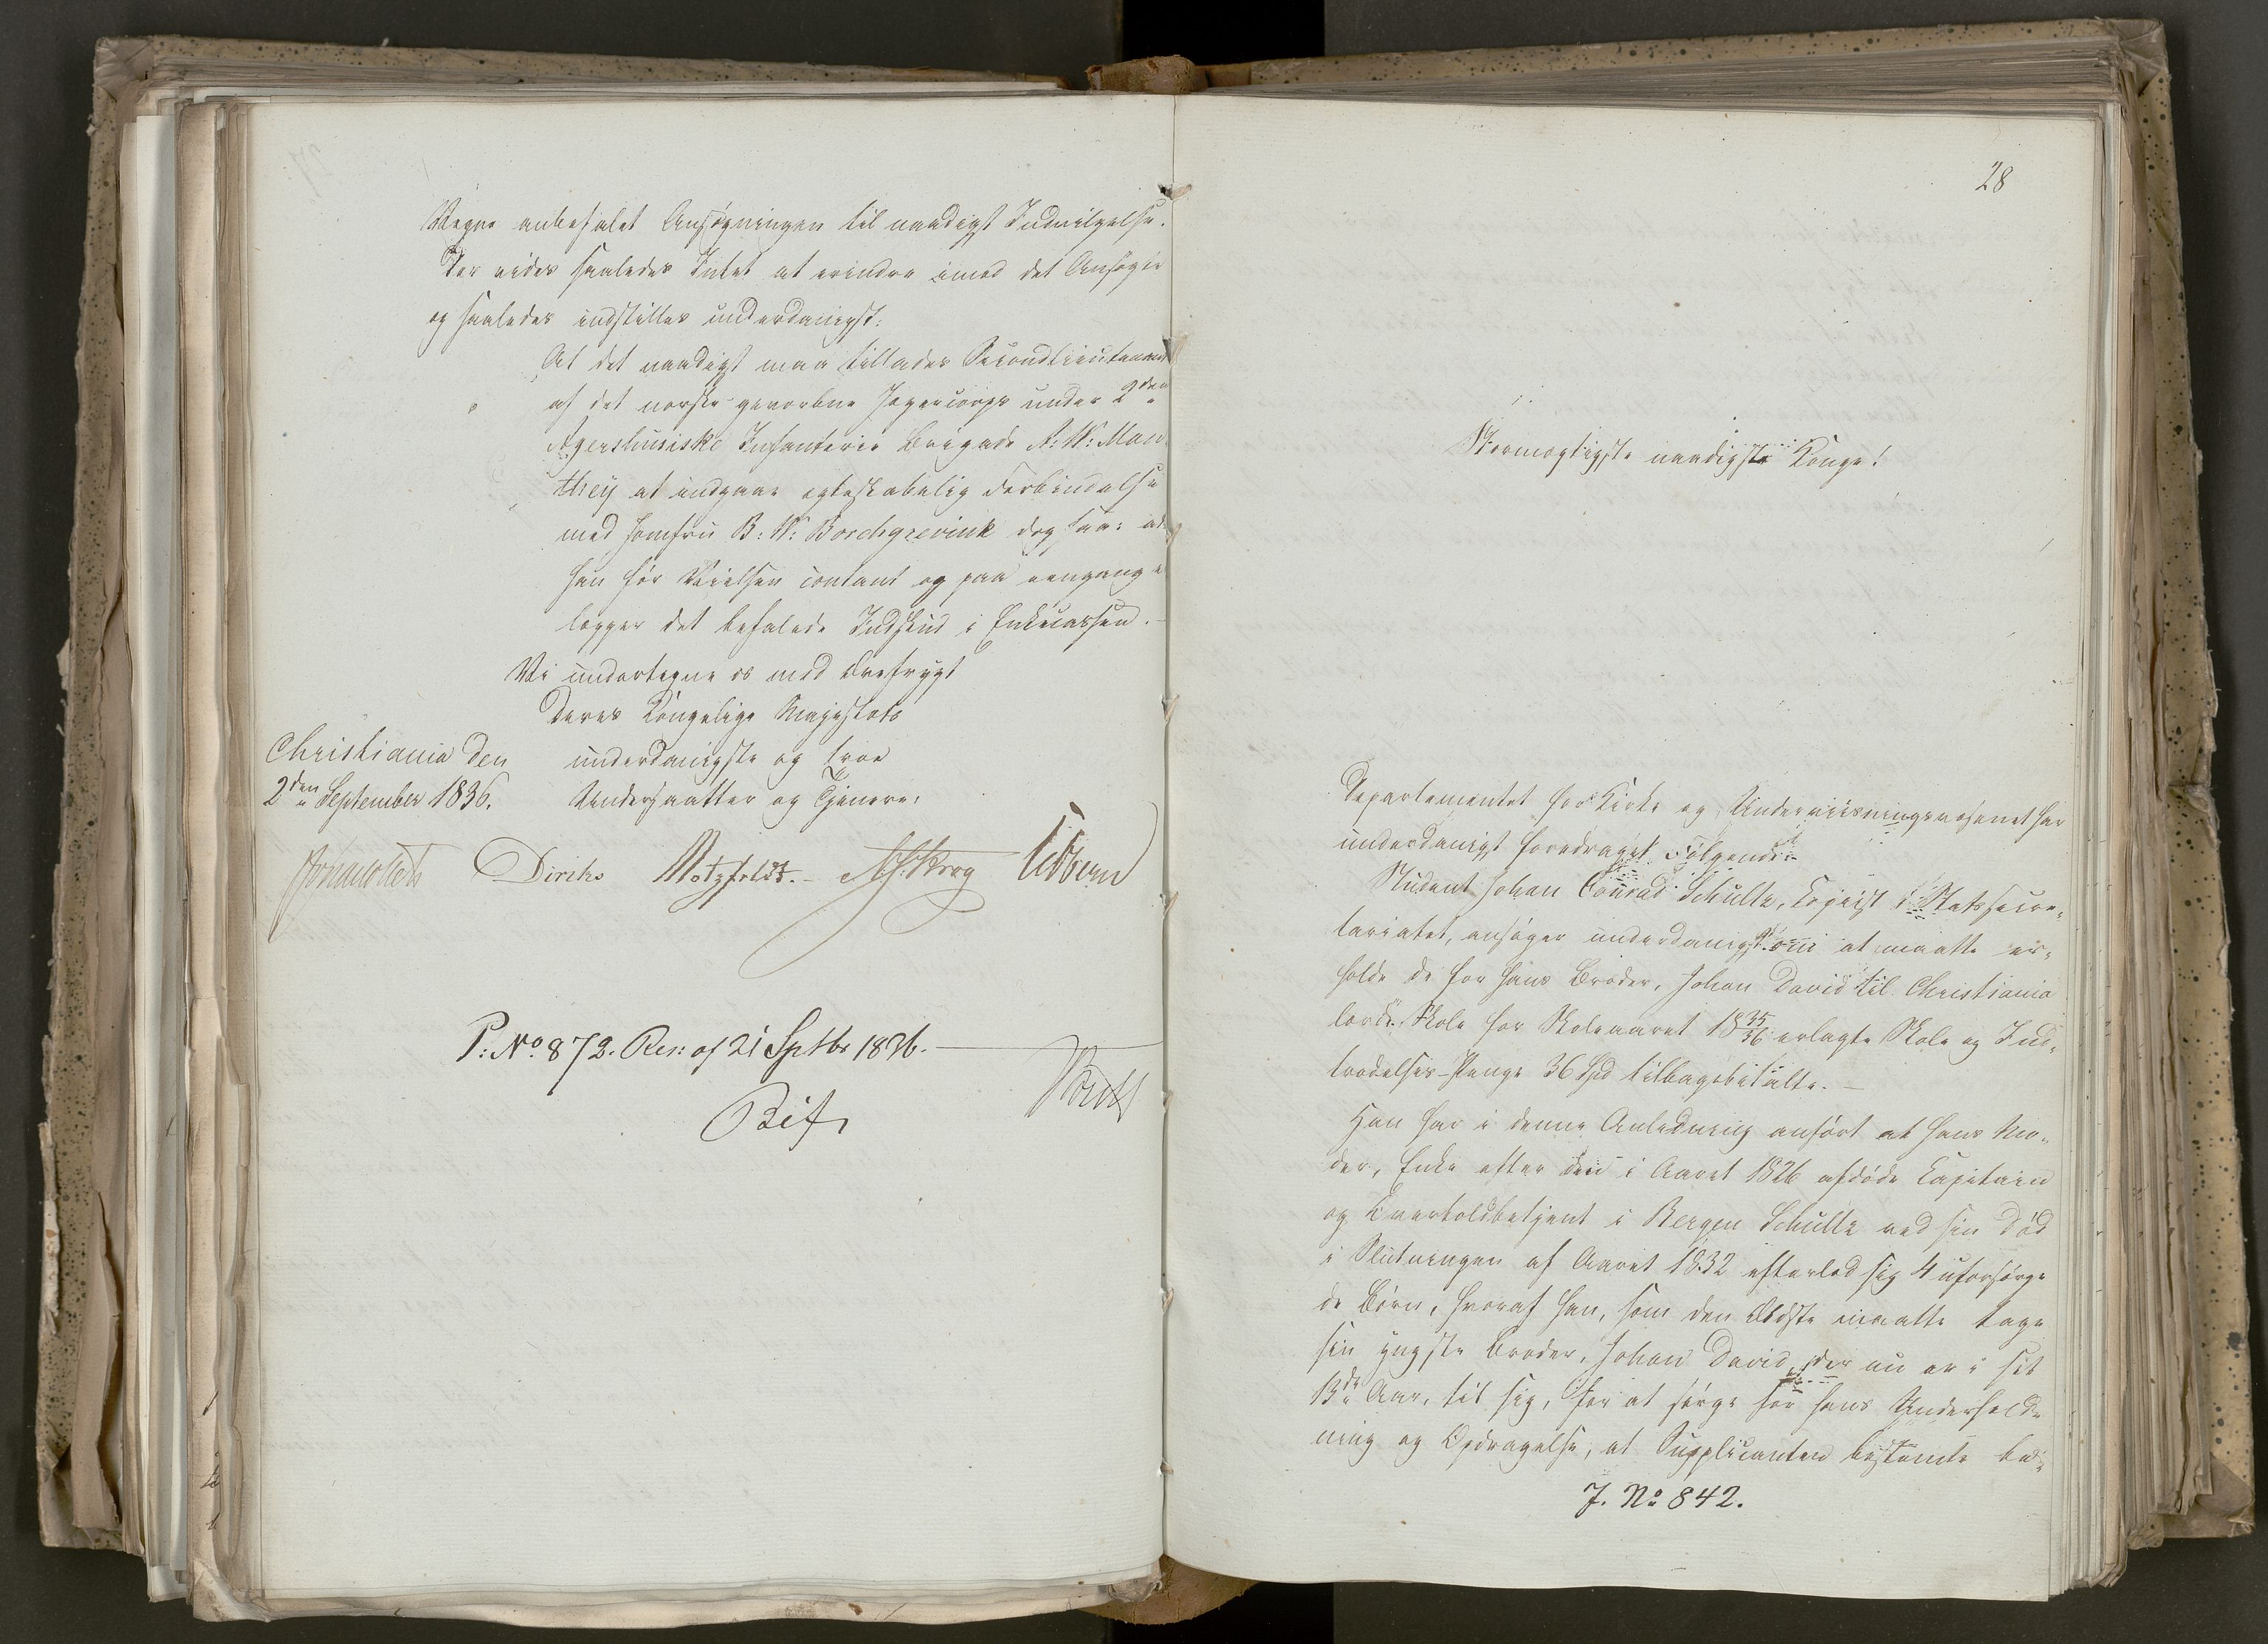 Vegne anbefalet Ansøgningen til naadigst Indvilgelse.
Der vides saaledes Intet at erindre imod det Ansøgte
og saaledes indstilles underdanigst:
At det naadigst maa tillades Secondlieutenant
af det norske gevorbne Jægercorps under 2den
Agershusiske Infanterie Brigade A: W: Man
they at indgaae egteskabelig Forbindelse
med Jomfru B: W: Borchgrevink dog saa: at
han før Vielsen contant og paa eengang er
lægger det befalede Indskud i Enkecassen.
Vi undertegne os med Ærefrygt
Deres Kongelige Majestæts
Christiania den underdanigste og troe
2den September 1836. Undersaatter og Tjenere:
Diriks Motzfeldt. Krog Vibbern
P: No 872. Res: af 21 Sptbr 1836.
Bif.
28
Stormægtigste naadigste Konge!
Departementet for Kirke og Underviisningsvæsenet har
underdanigst foredraget Følgende:
Student Johan Conrad Schultz, Copiist i Statssecre-
tariatet, ansøger underdanigst om at maatte er-
holde de for hans Broder, Johan David til Christiania
lærde Skole for Skoleaaret 1835/36 erlagte Skole og Ind-
trædelses-Penge 36 Spd tilbagebetalte. –
Han har i denne Anledning anført at hans Mo-
der, Enke efter den i Aaret 1826 afdøde Capitain
og Overtoldbetjent i Bergen Schultz ved sin Død
i Slutningen af Aaret 1832 efterlod sig 4 uforsørge
de Børn, hvoraf han, som den Ældste maatte tage
sin yngste Broder, Johan David, der nu er i sit
13de Aar, til sig, for at sørge for hans Underhold-
ning og Opdragelse, at Supplicanten bestemte
J. No 842.